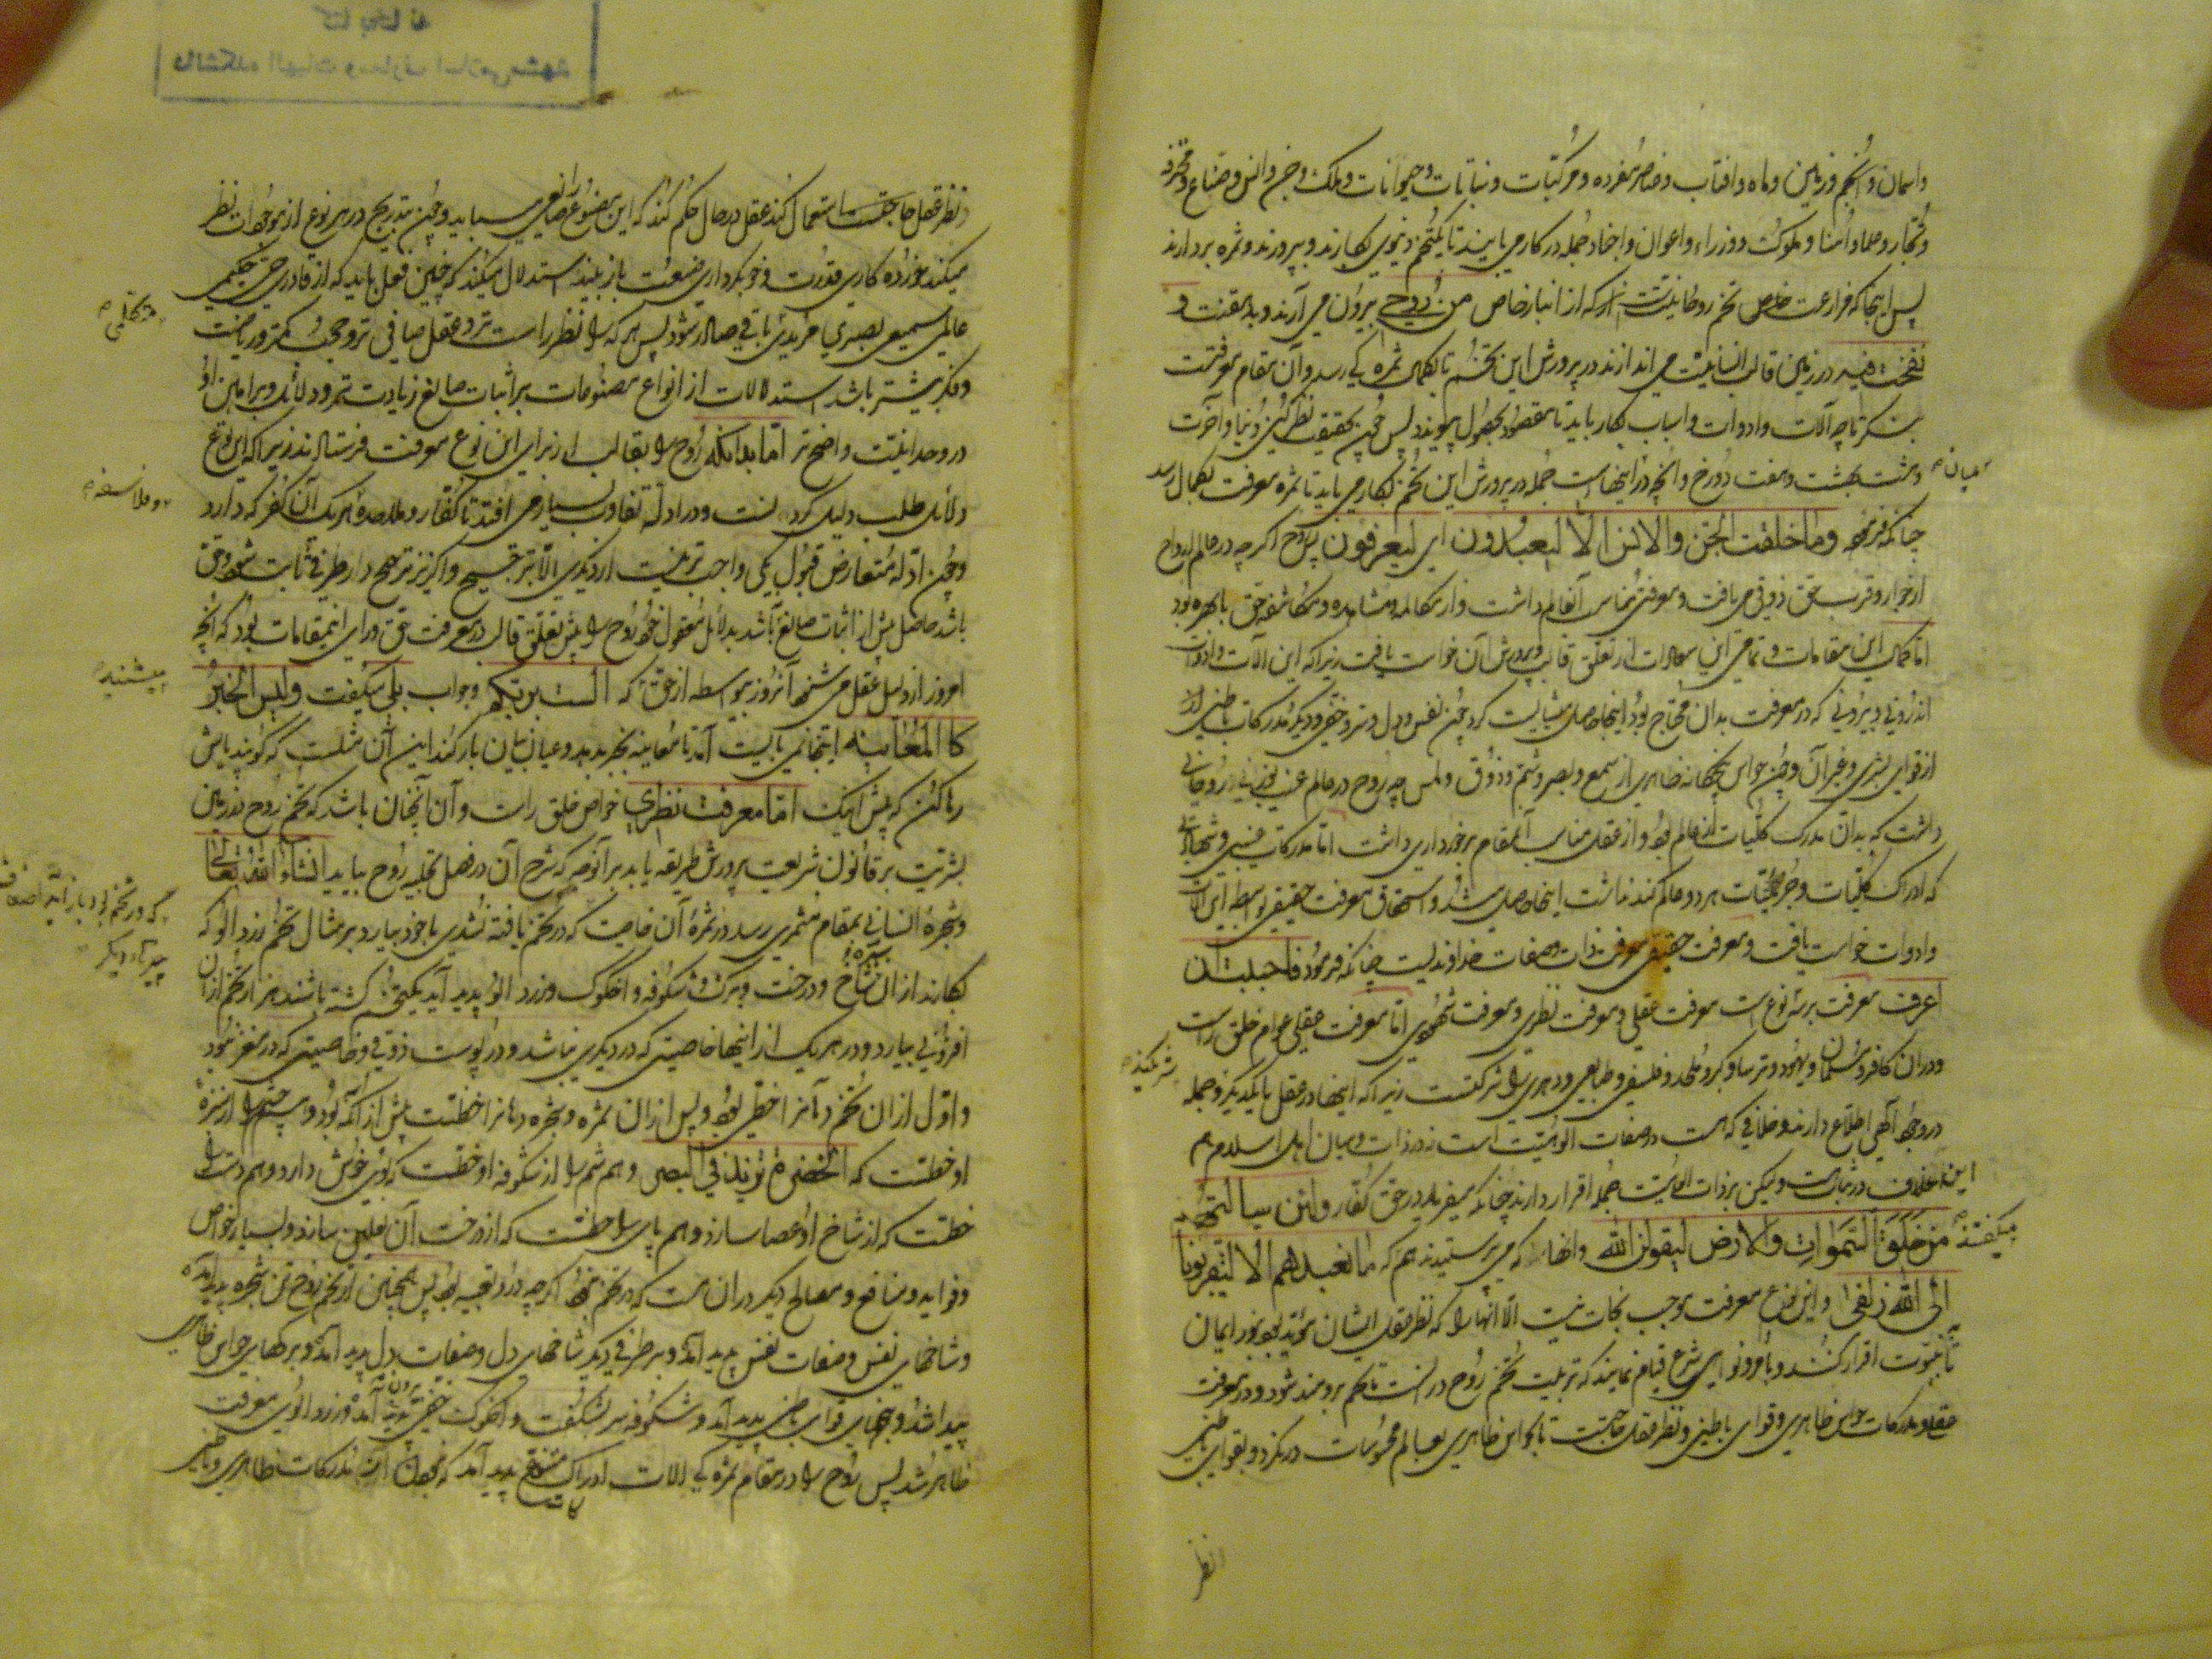 واسمان و انجم و زمین و ماه و افتاب و عناصر مفرده و مرکبات و نباتات و حیوانات و ملک و جن و انس و صناع و محترفه
و تجار و علما و امنا و ملوک و وزراء و اعوان و اجناد جمله در کار می بایند تا یک تخم دنیوی بکارند و بپرورند و ثمره بردارند
پس اینجا که زراعت خاص تخم روحانیتست که از انبار خاص من روحی بیرون می آرند و بدهقنت و
نفخت فیه در زمین قالب انسانیت می اندازند در پرورش این تخم تا بکمال ثمره کی رسد و آن مقام معرفتست
بنگر تا چه آلات و ادوات و اسباب بکار باید تا مقصود بحصول پیوندد پس چون بحقیقت نظر کنی دنیا و آخرت
و هشت بهشت و هفت دوزخ و انچه در اینهاست جمله در پرورش این تخم بکار می باید تا ثمره معرفت بکمال رسد
چنانکه فرمود وما خلقت الجن والانس الا لیعبدون ای لیعرفون پس روح اگر چه در عالم ارواح
از جوار و قرب حق ذوقی می یافت و معرفتی مناسب آنعالم داشت و از مکالمه و مشاهده و مکاشفه حق با بهره بود
اما کمال این مقامات و تمامی این سعادات از تعلق قالب و پرورش آن خواست یافت زیرا که این آلات و ادوات
اندرونی و بیرونی که در معرفت بدان محتاج بود اینجا حاصل میبایست کرد چون نفس و دل و سر و خفی و دیگر مدرکات باطنی
از قوای بشری و غیر آن و چون حواس پنجگانه ظاهری از سمع و بصر و شم و ذوق و لمس چه روح در عالم غیب
داشت که بدان مدرک کلیات آن عالم بود و از عقل مناسب آنمقام برخورداری داشت اما مدرکات غیبی و شهادتی
که ادراک کلیات و جزئیات هر دو عالم کند نداشت اینجا حاصل میشد و استحقاق معرفت حقیقی بواسطه این آلات
و ادوات خواست یافت و معرفت حقیقی معرفت ذات و صفات خداوندیست چنانکه فرمود فاحببت ان
اعرف معرفت بر سه نوع است معرفت عقلی و معرفت نظری و معرفت شهودی اما معرفت عقلی عوام خلق راست
و در ان کافر و مسلمان و یهود و ترسا و گبر و ملحد و فلسفی و طبایعی و دهری را شرکتست زیرا که اینها در عقل با یکدیگر
در وجود آلهی اطلاع دارند و خلافی که هست در صفات الوهیت است نه در ذات و میان اهل اسلام هم
این خلاف در ثباتست و لیکن بر ذات الوهیت جمله اقرار دارند چنانکه میفرماید در حق کفار ولئن سالتهم
من خلق السموات والارض لیقولن الله و انها که بت می پرستیدند هم که ما نعبدهم الا لیقربونا
الی الله زلفی و این نوع معرفت موجب نجات نیست الا انها را که نظر عقل ایشان مؤید بود بنور ایمان
تا بنبوت اقرار کنند و باوامر و نواهی شرع قیام نمایند که تربیت تخم روح در انست تا تخم برومند شود و در معرفت
عقلی مدرکات حواس ظاهری و قوای باطنی و نظر عقل حاجتست تا بحواس ظاهری بعالم محسوسات درنگرد و بقوای باطنی
ونظر
میان
شرکتند
میگفتند
و نظر عقل حاجتست استعمال کند عقل در حال حکم کند که این مصنوع را صانعی می باید و چون بتدریج در هر نوع از موجودات نظر
میکند خورده کاری قدرت و خوبکرداری صنعت باز بیند استدلال میکند که چنین فعل باید که از قادری حی حکیمی
عالمی سمیعی بصیری مریدی باقی صادر شود پس هر که را نظر راست تر و عقل صافی تر و حجب کمتر و ریاضت
و فکر بیشتر باشد استدلالات از انواع مصنوعات بر اثبات صانع زیادت تر و دلائل و براهین او
در وحدانیت واضح تر اما بدانکه روح را بقالب از برای این نوع معرفت فرستاده اند زیرا که این نوع
دلائل طلب دلیل کردنست و در ادله تفاوت بسیار می افتد تا کفار و ملاحده هر یک آن کفر که دارد
و چون ادله متعارض قبول یکی واجب تر نیست از دیگری الا بترجیح و اگر نیز ترجیح دارد طرفی ثابت شود حق
باشد حاصل پیش از اثبات صانع نباشد بدلائل معقول خود روح را پیش تعلق قالب در معرفت حق ورای این مقامات بود که انچه
امروز از دلیل عقل می شنود آنروز بیواسطه از حق که الست بربکم و جواب بلی میگفت ولیس الخبر
کالمعاینه اینجا نمی بایست آمد تا معاینه بخبر بدهد و عیان ببیان بار کند این آن مثلست که گویند
رها کن که پیش ایک اما معرفت نظری خواص خلق راست و آن آنچنان باشد که تخم روح در زمین
بشریت بر قانون شریعت پرورش طریقت یابد بر آنوجه که شرح آن در فصل تجلیه روح بیاید انشاء الله تعالی
و شجره انسانی بمقام مثمری رسد در ثمره آن خاصیت که در تخم یافته نشدی باخود بیارد بر مثال تخم زرد الو که
بکارند از ان شاخ و درخت و برک و شکوفه و اخکوک و زرد الو پدید آید یکتخم کشته باشند هزار تخم از ان
افزونی بیارد و در هر یک از اینها خاصیتی که در دیگری نباشد و در پوست ذوقی و خاصیتی که در مغز نبود
و اول از ان تخم دهانرا حظی بود و پس از ان ثمره و شجره دهانرا حظیست پیش از آنکه بود و هم چشم را از سبزه
او حظیست که الخضرة تزید فی البصر و هم شم را از شکوفه او حظیست که بوی خوش دارد و هم دست را
حظیست که از شاخ او عصا سازد و هم پای را حظیست که از درخت آن نعلین سازد و بسیار خواص
و فواید و منافع و مصالح دیگر در ان هست که در تخم نبود اگر چه در او تعبیه بود پس همچنین از تخم روح تن شجره پدید آمد
و شاخهای نفس و صفات نفس پدید آمد و بر طرفی دیگر شاخهای دل و صفات دل پدید آمد و برکهای حواس ظاهری
پیدا شد و بیخهای قوای باطنی پدید آمد و شکوفه سر بشکفت و اخکوک خفی بیرون آمد و زرد الوی معرفت
ظاهر شد پس روح را در مقام ثمره کی الات ادراک متنوع پدید آمد که نبود از مدرکات ظاهری و باطنی
متکلمی
و فلاسفه
میشنید